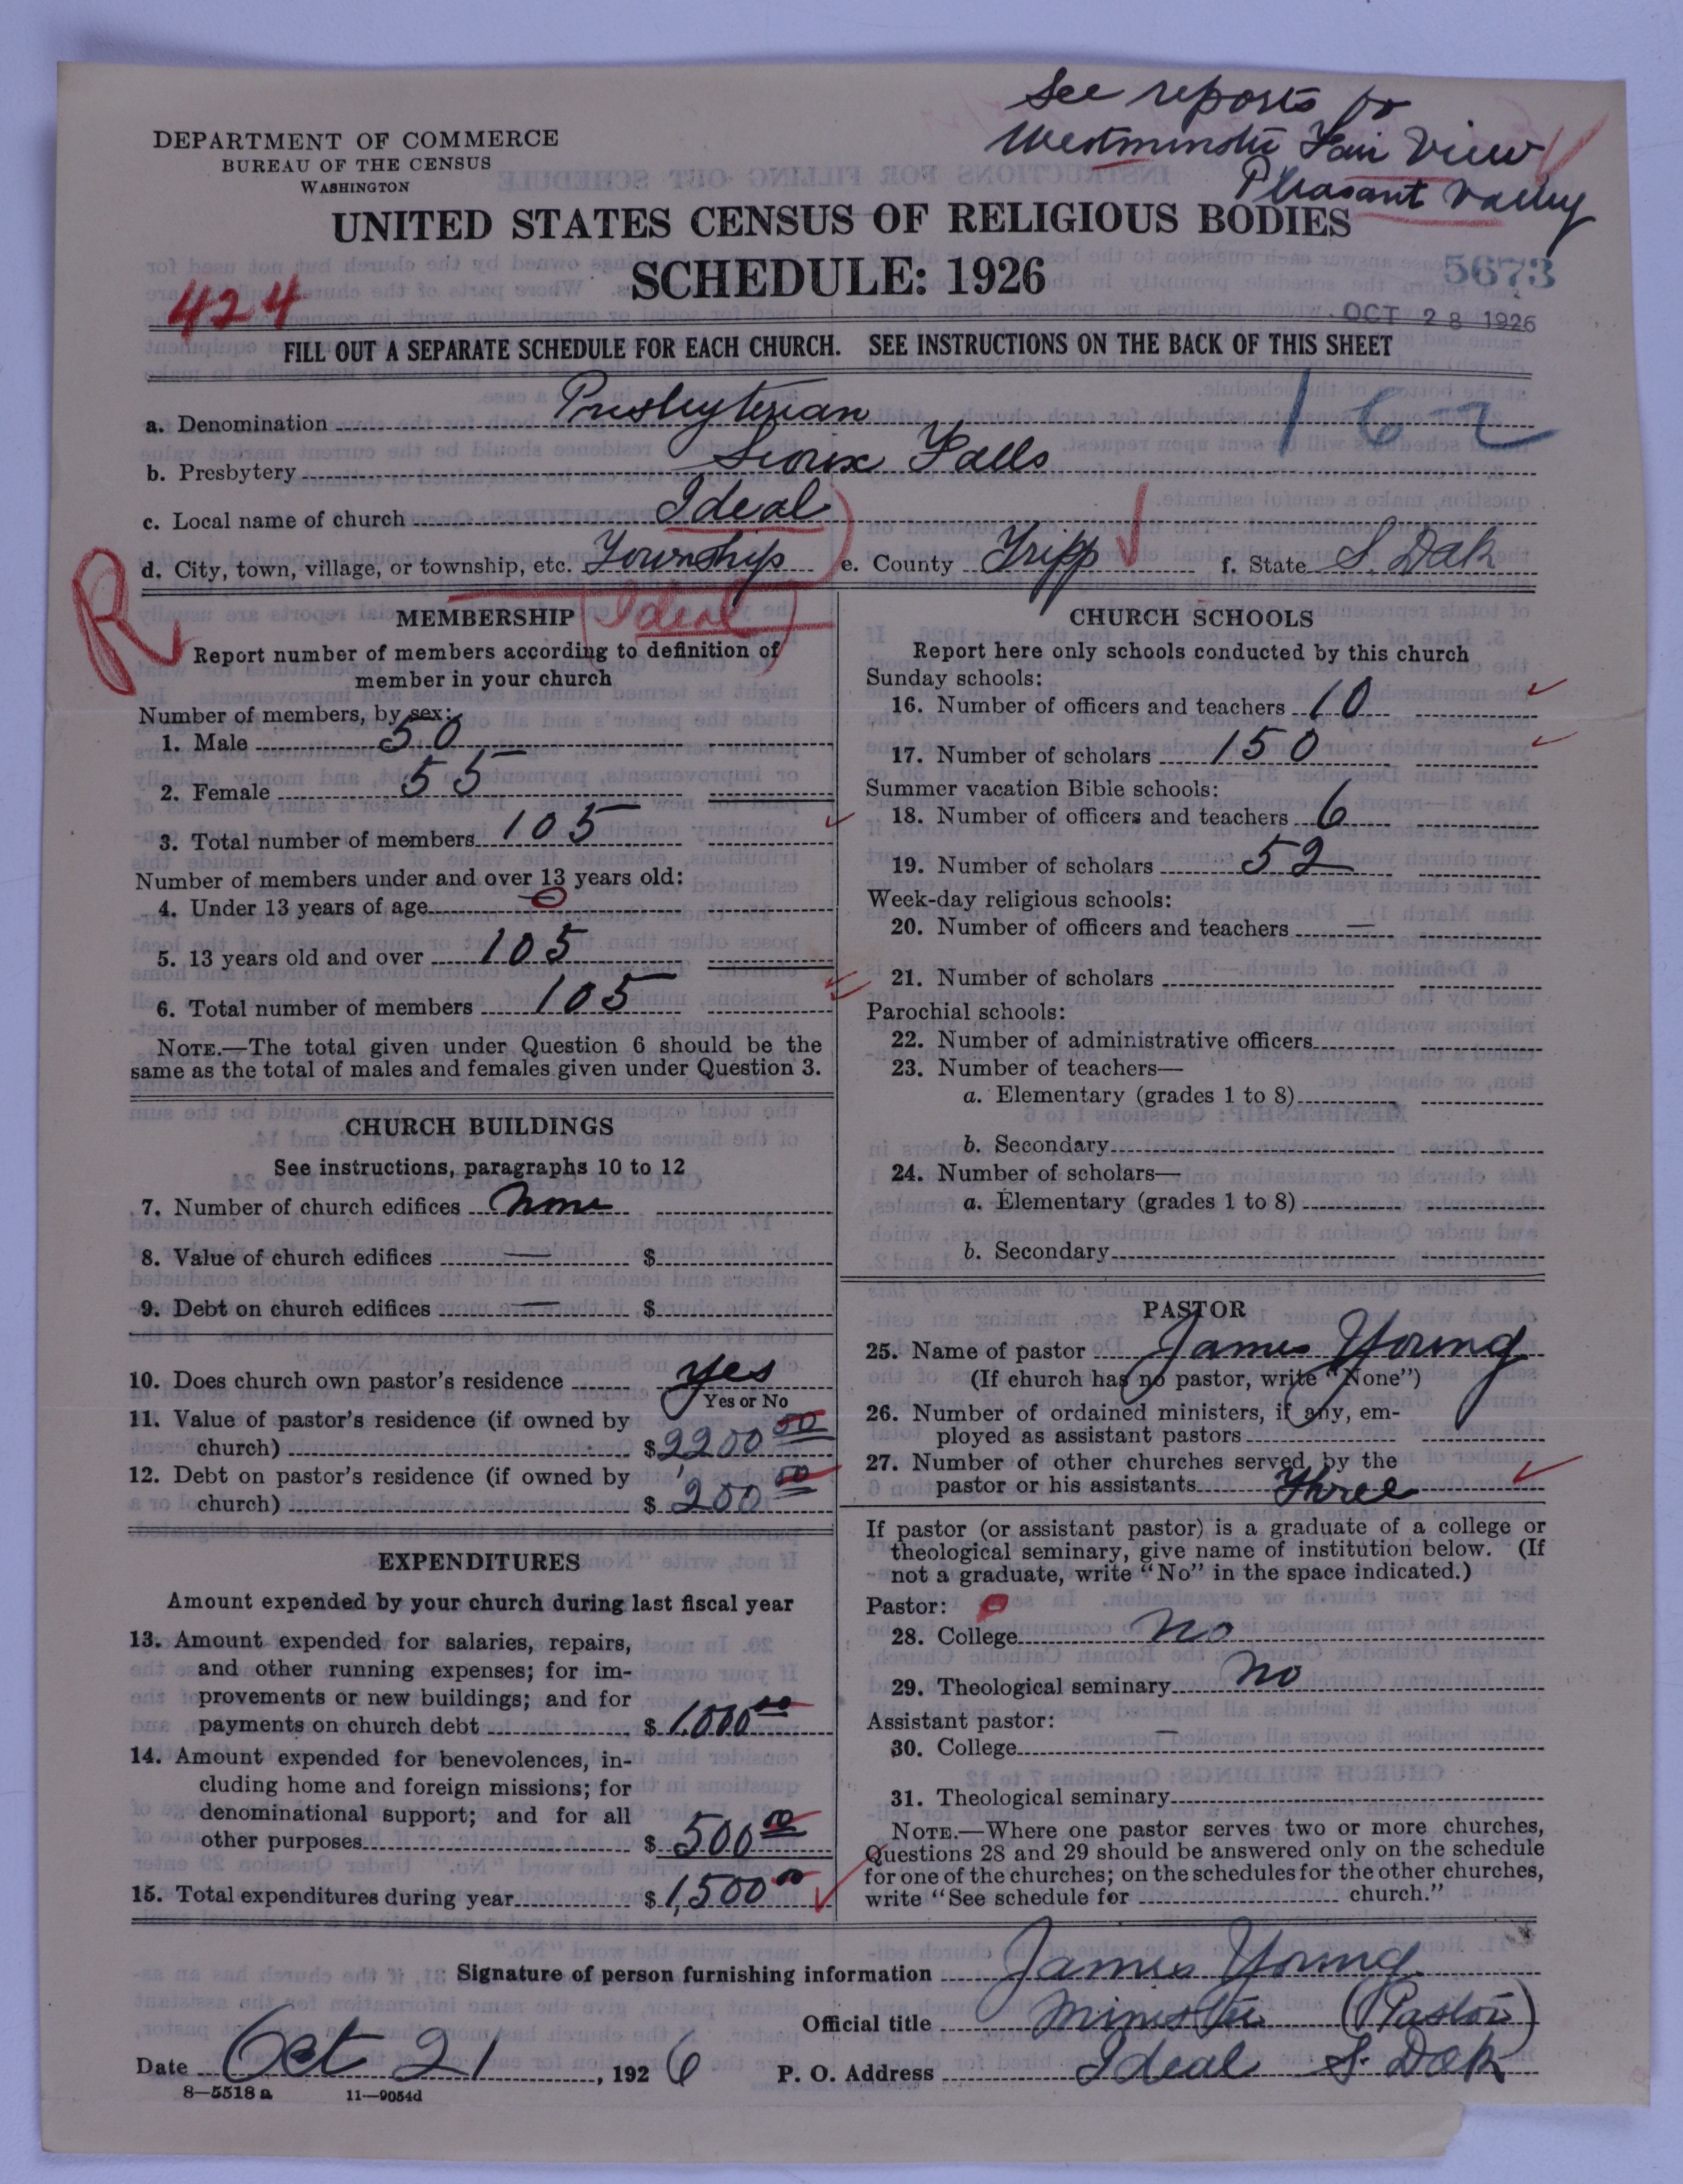 See reports for
Westminster Fair View
Pleasant Valley
DEPARTMENT OF COMMERCE
BUREAU OF THE CENSUS
WASHINGTON
UNITED STATES CENSUS OF RELIGIOUS BODIES
SCHEDULE: 1926
5673
424
OCT 28 1926
FILL OUT A SEPARATE SCHEDULE FOR EACH CHURCH. SEE INSTRUCTIONS ON THE BACK OF THIS SHEET
162
a. Denomination Presbyterian
b. Presbytery Sioux Falls
c. Local name of church Ideal
d. City, town, village, or township, etc. Township e. County Tripp f. State S. Dak
R
MEMBERSHIP Ideal
Report number of members according to definition of
member in your church
Number of members, by sex:
1. Male 50
2. Female 55
3. Total number of members 105
Number of members under and over 13 years old:
4. Under 13 years of age 0
5. 13 years old and over 105
6. Total number of members 105
NOTE.—The total given under Question 6 should be the
same as the total of males and females given under Question 3.
CHURCH BUILDINGS
See instructions, paragraphs 10 to 12
7. Number of church edifices None
8. Value of church edifices — $
9. Debt on church edifices — $
10. Does church own pastor's residence yes
Yes or No
11. Value of pastor's residence (if owned by
church) $2200 00
12. Debt on pastor's residence (if owned by
church) $ 200 00
EXPENDITURES
Amount expended by your church during last fiscal year
13. Amount expended for salaries, repairs,
and other running expenses; for im-
provements or new buildings; and for
payments on church debt $ 1,000 00
14. Amount expended for benevolences, in-
cluding home and foreign missions; for
denominational support; and for all
other purposes $ 500 00
15. Total expenditures during year $ 1,500 00
CHURCH SCHOOLS
Report here only schools conducted by this church
Sunday schools:
16. Number of officers and teachers 10
17. Number of scholars 150
Summer vacation Bible schools:
18. Number of officers and teachers 6
19. Number of scholars 52
Week-day religious schools:
20. Number of officers and teachers —
21. Number of scholars
Parochial schools:
22. Number of administrative officers
23. Number of teachers—
a. Elementary (grades 1 to 8)
b. Secondary
24. Number of scholars—
a. Elementary (grades 1 to 8)
b. Secondary
PASTOR
25. Name of pastor James Young
(If church has no pastor, write "None")
26. Number of ordained ministers, if any, em-
ployed as assistant pastors
27. Number of other churches served by the
pastor or his assistants Three
If pastor (or assistant pastor) is a graduate of a college or
theological seminary, give name of institution below. (If
not a graduate, write "No" in the space indicated.)
Pastor: 0
28. College No
29. Theological seminary No
Assistant pastor:
30. College —
31. Theological seminary
NOTE.—Where one pastor serves two or more churches,
Questions 28 and 29 should be answered only on the schedule
for one of the churches; on the schedules for the other churches,
write "See schedule for church."
Signature of person furnishing information James Young
Official title Minister (Pastor)
Date Oct 21, 1926 P. O. Address Ideal S. Dak
8—5518 a 11—9054d